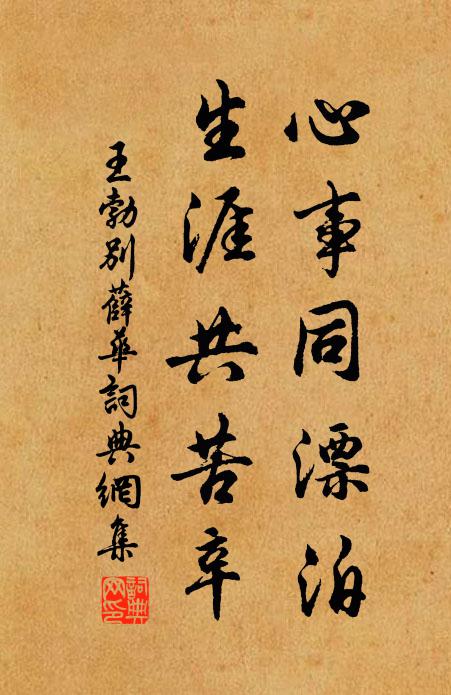 心事同漂泊
生涯共苦辛
王勃別薛華詞典網集
詞典
网印